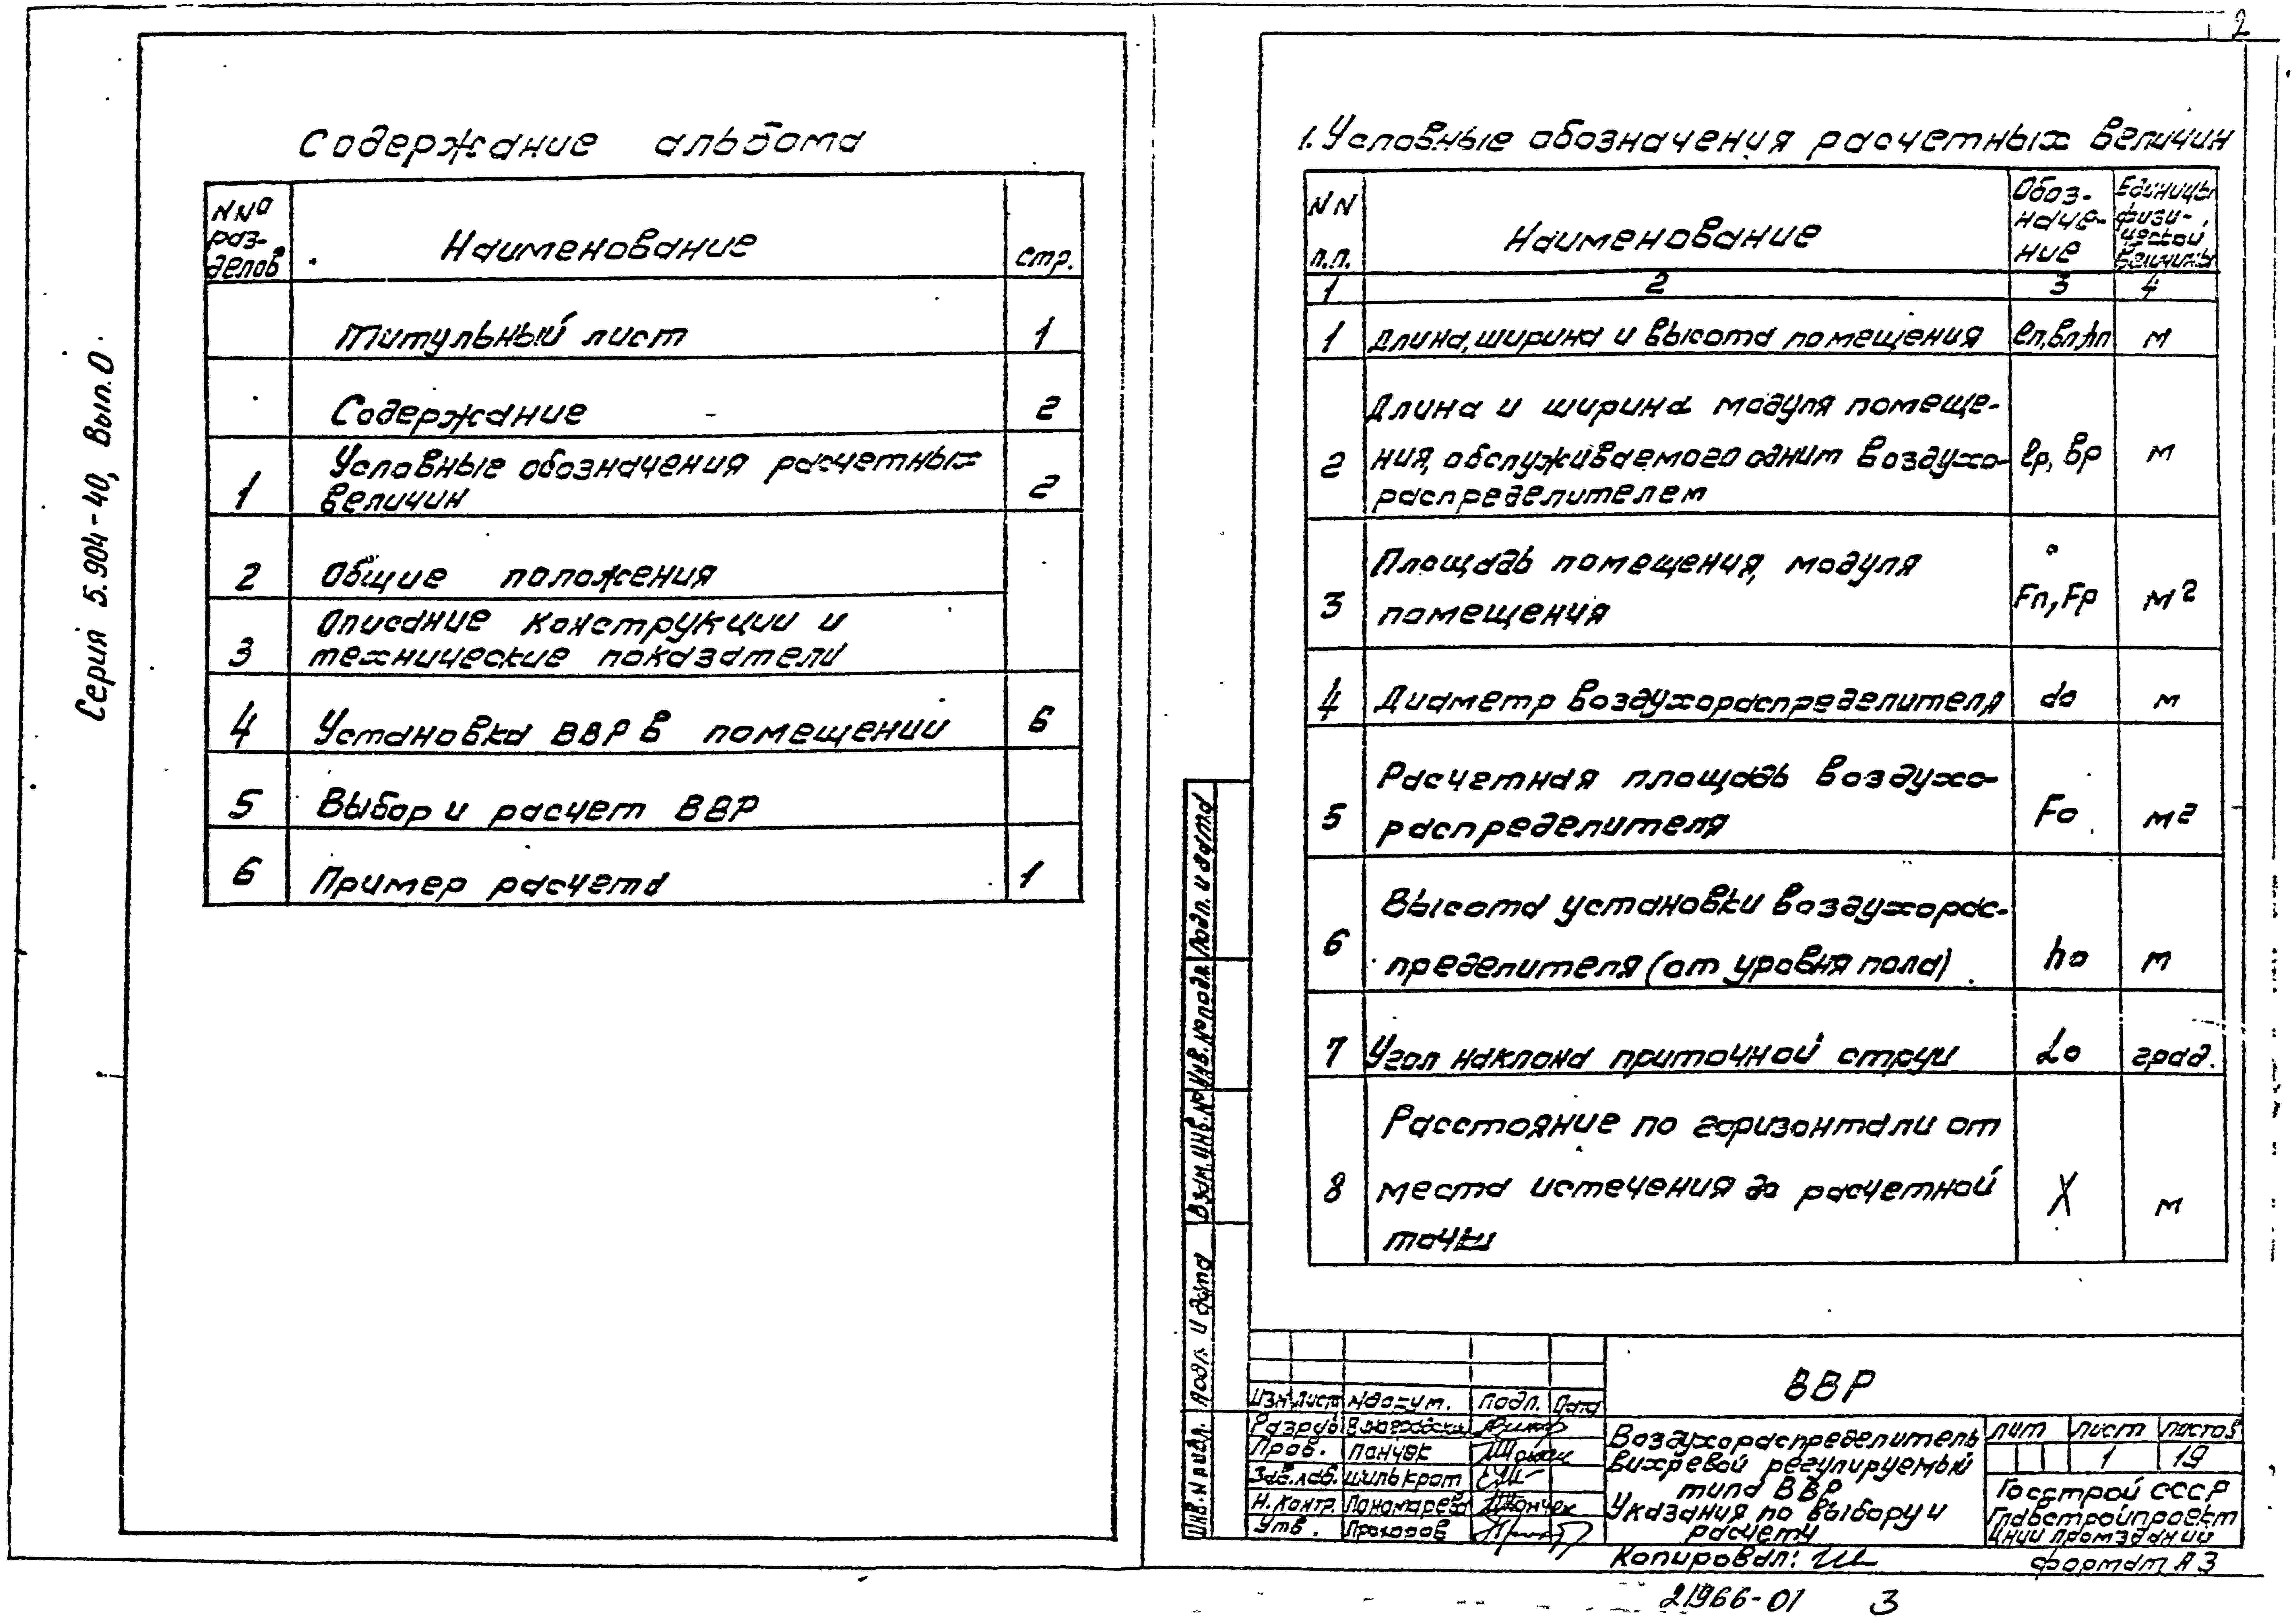 2
Серия 5.904-40, Вып. 0
Содержание альбома
NNº раз-
делов
Наименование
стр.
Титульный лист 1
Содержание 2
1 Условные обозначения расчетных 2
величин
2 Общие положения
3 Описание конструкции и
технические показатели
4 Установка ВВР в помещении 6
5 Выбор и расчет ВВР
6 Пример расчета 1
1. Условные обозначения расчетных величин
NN
п.п.
Наименование
Обоз-
наче-
ние
Единицы
физи-
ческой
величины
1 2 3 4
1 Длина, ширина и высота помещения ℓп, вп, hп м
Длина и ширина модуля помеще-
2 ния, обслуживаемого одним воздухо- ℓр, вр м
распределителем
Площадь помещения, модуля
3 помещения Fп, Fр м2
4 Диаметр воздухораспределителя do м
Расчетная площадь воздухо-
5 распределителя Fo м2
Высота установки воздухорас-
6 пределителя (от уровня пола) ho м
7 Угол наклона приточной струи αo град.
Расстояние по горизонтали от
8 места истечения до расчетной X м
точки
Подп. и дата
Инв. №подл
Взам. инв. №
Подп. и дата
Инв. N подл.
ВВР
Изм Лист N докум. Подп. Дата
Разраб
Пров. Панчек
Зав. лаб. Шилькрот
Н. контр. Пономарева
Утв. Прохоров
Воздухораспределитель
вихревой регулируемый
типа ВВР
Указания по выбору и
расчету
лит лист листов
1 19
Госстрой СССР
Главстройпроект
ЦНИИпромзданий
Копировал:
формат А3
21966-01 3